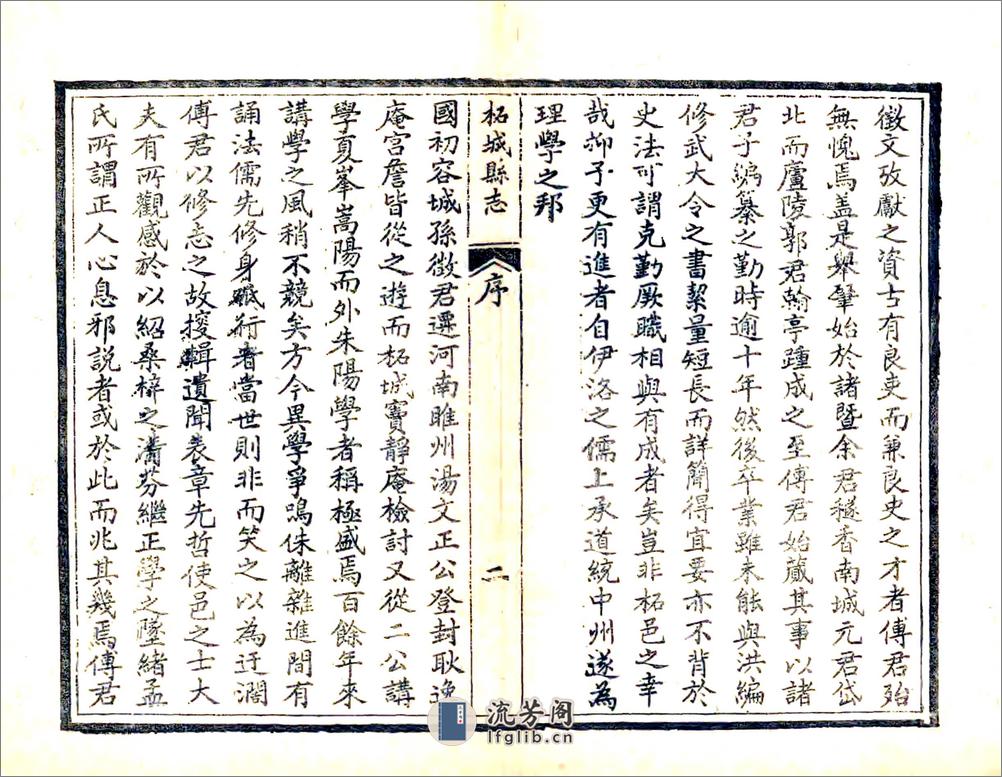 徵文攷獻之資古有良吏而兼良史之才者傅君殆
無愧焉盖是舉肇始於諸暨余君穟香南城元君岱
北而廬陵郭君翰亭踵成之至傅君始蕆其事以諸
君子編纂之勤時逾十年然後卒業雖未能與洪編
修武大令之書絜量短長而詳簡得宜要亦不背於
史法可謂克勤厥職相與有成者矣豈非柘邑之幸
哉抑予更有進者自伊洛之儒上承道統中州遂為
理學之邦
柘城縣志
序
二
國初容城孫徵君遷河南睢州湯文正公登封耿逸
庵宫詹皆從之遊而柘城竇靜庵檢討又從二公講
學夏峯嵩陽而外朱陽學者稱極盛焉百餘年來
講學之風稍不競矣方今異學爭鳴侏離雜進間有
誦法儒先修身職行者當世則非而笑之以為迂濶
傅君以修志之故搜輯遺聞表章先哲使邑之士大
夫有所觀感於以紹桑梓之淸芬繼正學之墜緒孟
氏所謂正人心息邪説者或於此而兆其幾焉傅君
流芳阁
lfglib.cn